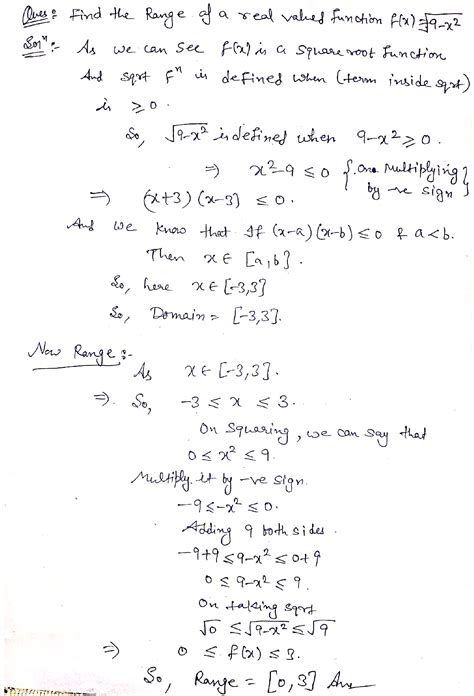 Ques: Find the Range of a real valued function f(x)=√9-x²
Solⁿ:- As we can see f(x) is a square root function
And sqrt fⁿ is defined when (term inside sqrt)
is ≥ 0.
So, √9-x² is defined when 9-x² ≥ 0.
⇒ x²-9 ≤ 0 {One Multiplying by -ve sign}
⇒ (x+3)(x-3) ≤ 0.
And we know that If (x-a)(x-b) ≤ 0 & a<b.
Then x ∈ [a,b].
So, here x ∈ [-3,3]
So, Domain = [-3,3].
Now Range:-
As x ∈ [-3,3].
⇒. So, -3 ≤ x ≤ 3.
On Squaring, we can say that
0 ≤ x² ≤ 9.
Multiply it by -ve sign.
-9 ≤ -x² ≤ 0.
Adding 9 both sides.
-9+9 ≤ 9-x² ≤ 0+9
0 ≤ 9-x² ≤ 9.
On taking sqrt
√0 ≤ √9-x² ≤ √9
⇒ 0 ≤ f(x) ≤ 3.
So, Range = [0,3] Ans